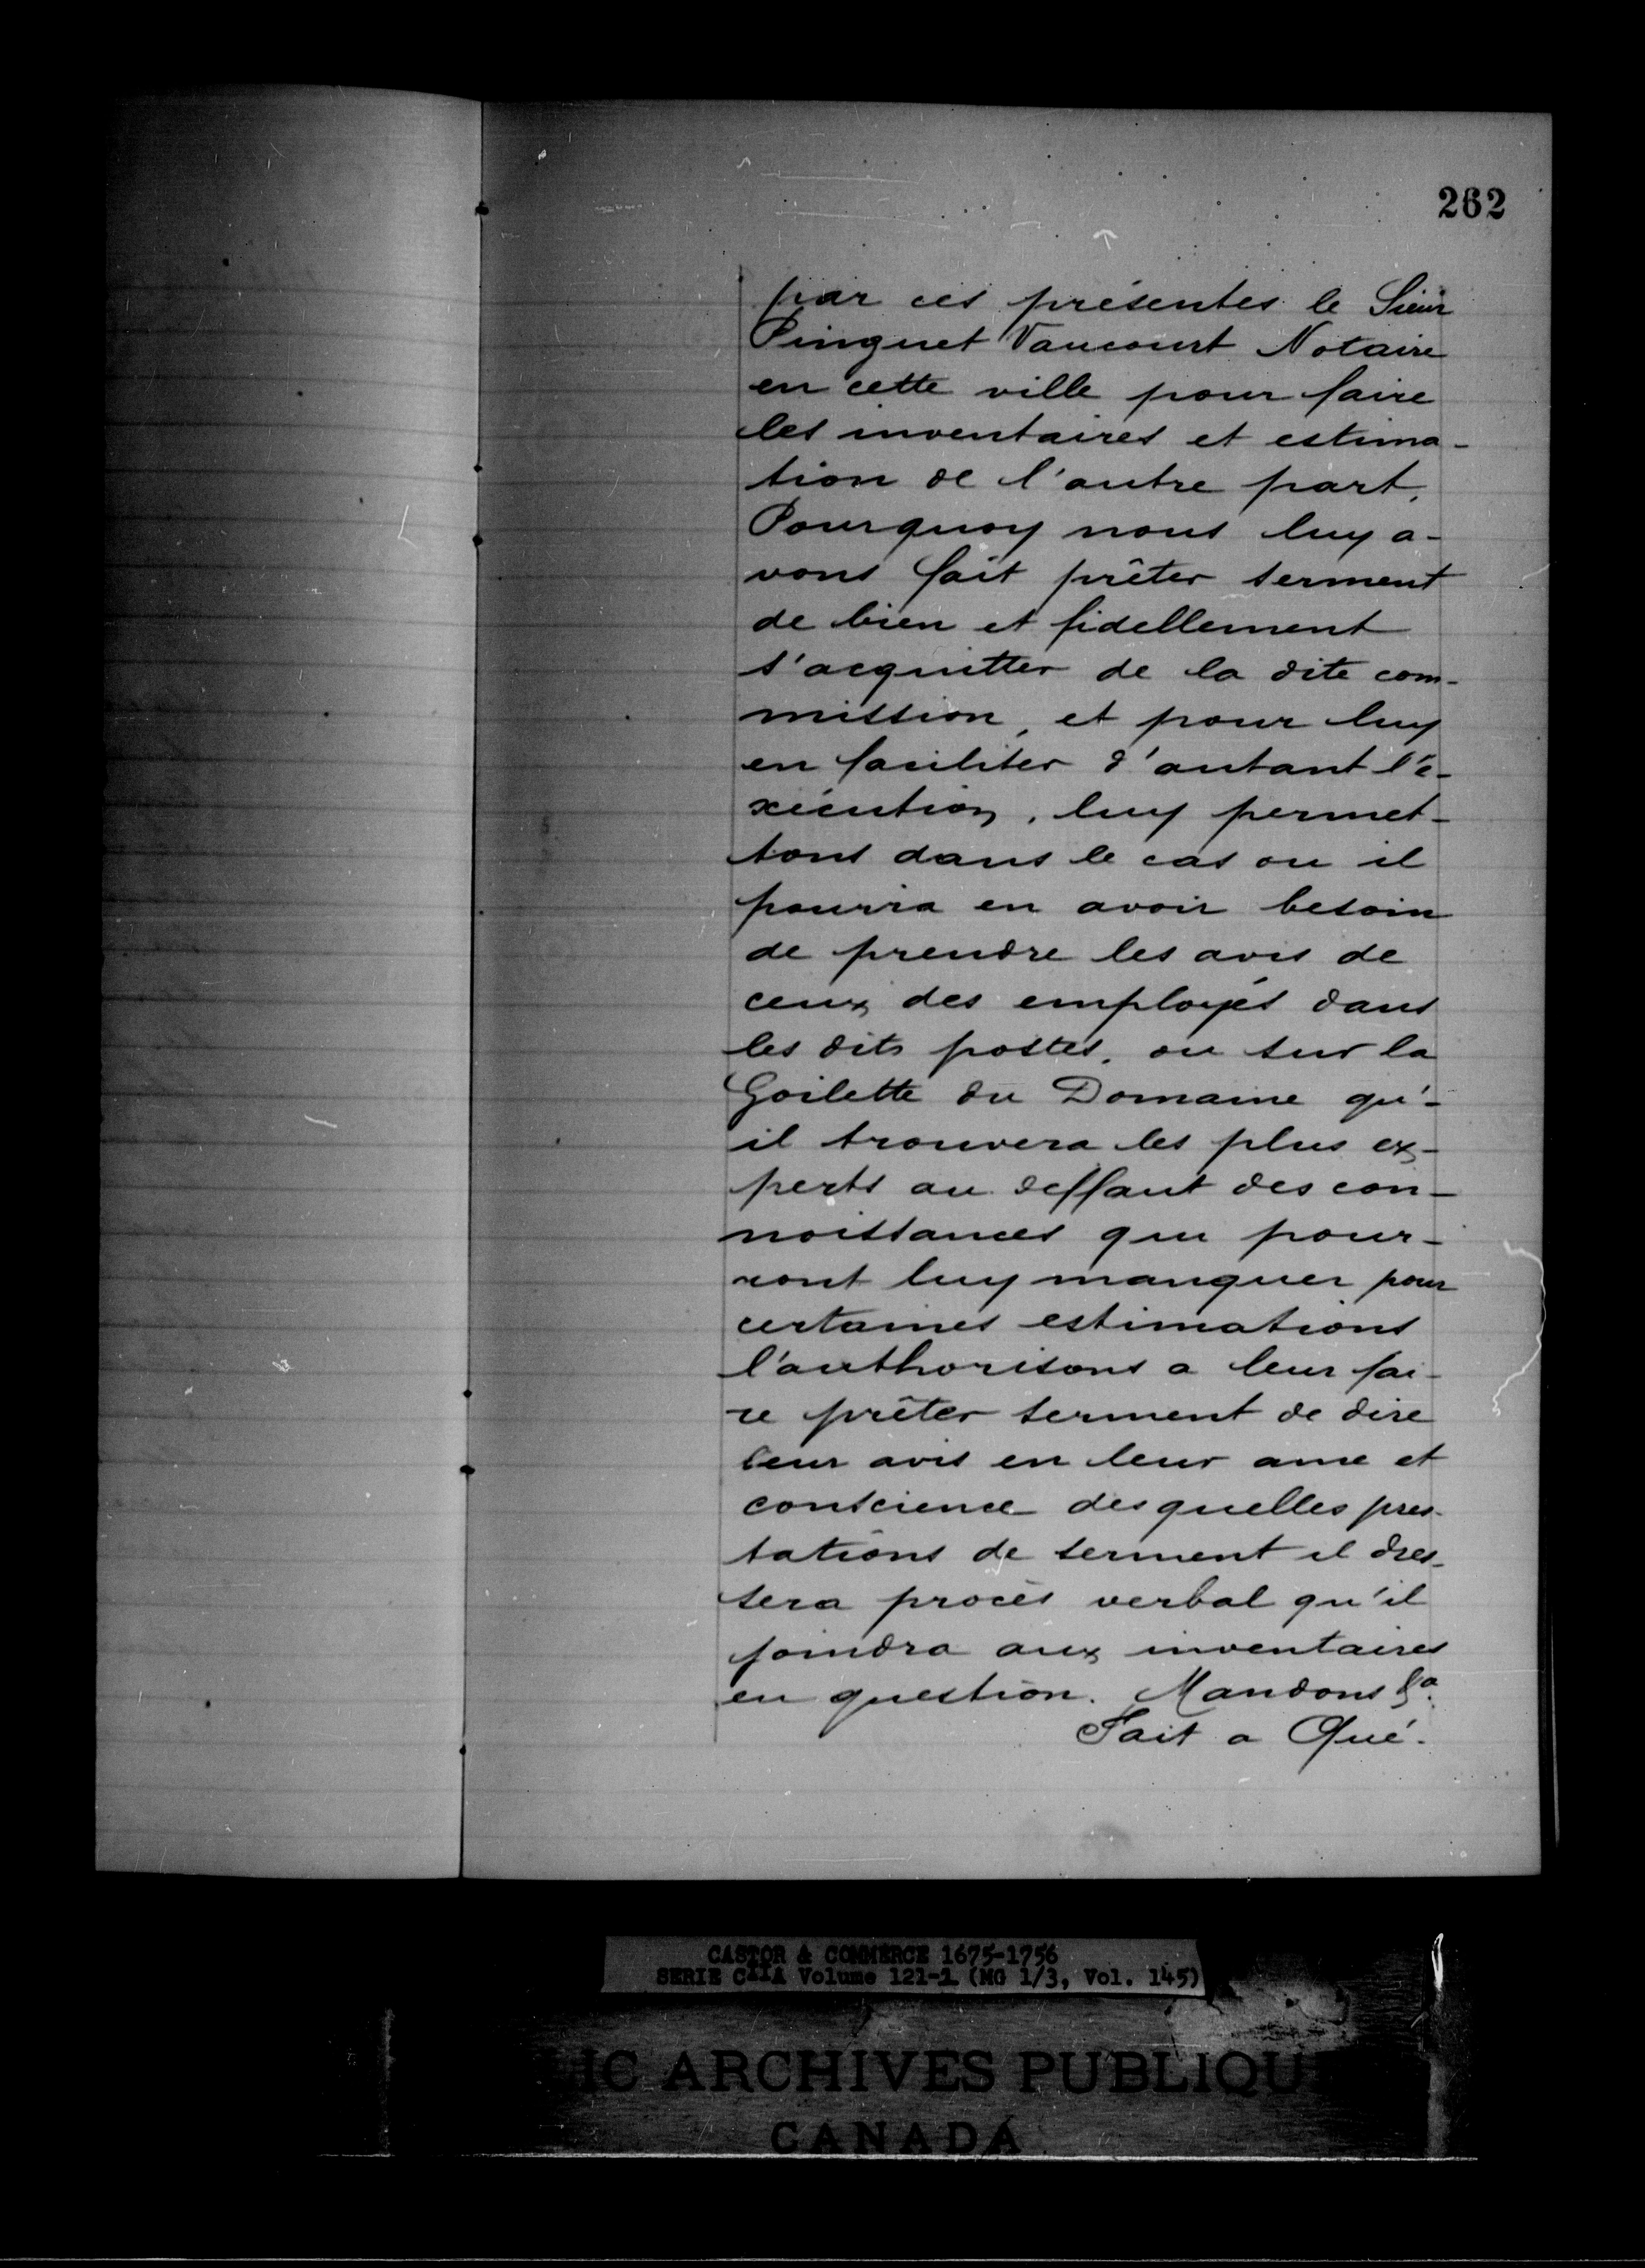 262
par ces présentes le Sieur
Pinguet Vaucourt Notaire
en cette ville pour faire
les inventaires et estima-
tion de l'autre part.
Pourquoy nous luy a-
vons fait prêter serment
de bien et fidellement
s'acquitter de la dite com-
mission, et pour luy
en faciliter d'autant l'é-
xécution, luy permet-
tons dans le cas ou il
pourra en avoir besoin
de prendre les avis de
ceux des employés dans
les dits postes, ou sur la
Goilette du Domaine qu'-
il trouvera les plus ex-
perts au deffaut des con-
noissances qui pour-
ront luy manquer pour
certaines estimations
l'authorisons a leur fai-
re prêter serment de dire
leur avis en leur ame et
conscience desquelles pres-
tations de serment il dres-
sera procès verbal qu'il
joindra aux inventaires
en question. Mandons &a.
Fait a Qué-
CASTOR & COMMERCE 1675-1756
SERIE C11A Volume 121-1 (MG 1/3, Vol. 145)
IC ARCHIVES PUBLIQU
CANADA